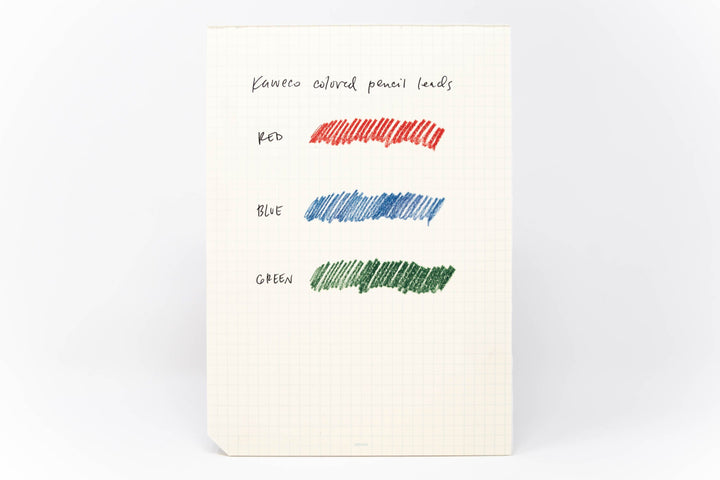 Kaweco colored pencil leads
RED
BLUE
GREEN